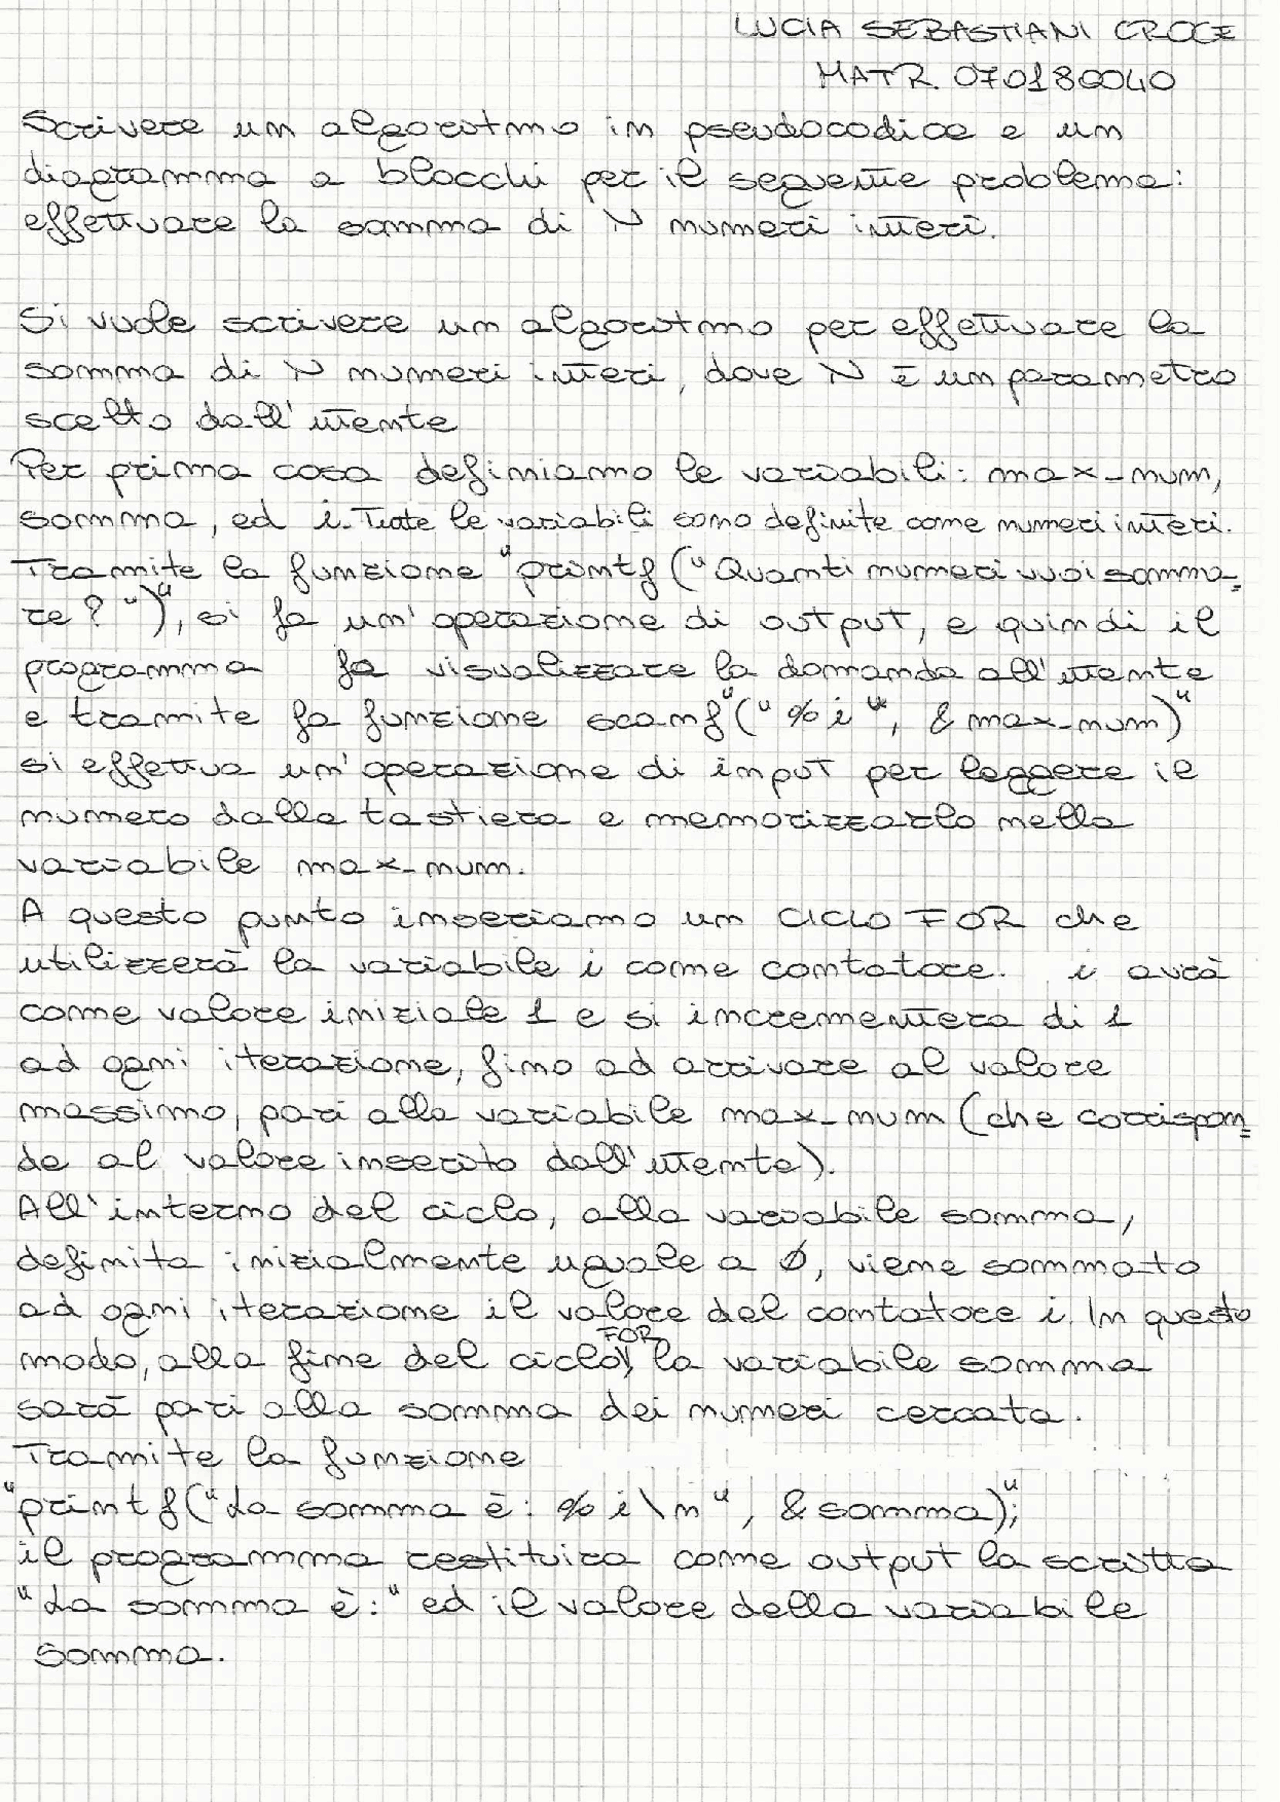 LUCIA SEBASTIANI CROCE
MATR. 070180040
Scrivere un algoritmo in pseudocodice e un
diagramma a blocchi per il seguente problema:
effettuare la somma di N numeri interi.
Si vuole scrivere un algoritmo per effettuare la
somma di N numeri interi, dove N è un parametro
scelto dall'utente
Per prima cosa definiamo le variabili: max-num,
somma, ed i. Tutte le variabili sono definite come numeri interi.
Tramite la funzione "printf("Quanti numeri vuoi somma=
re? ")", si fa un'operazione di output, e quindi il
programma fa visualizzare la domanda all'utente
e tramite la funzione scanf"("%i", &max-num)"
si effettua un'operazione di input per leggere il
numero dalla tastiera e memorizzarlo nella
variabile max-num.
A questo punto inseriamo un CICLO FOR che
utilizzerà la variabile i come contatore. i avrà
come valore iniziale 1 e si incrementera di 1
ad ogni iterazione, fino ad arrivare al valore
massimo, pari alla variabile max-num (che corrispon=
de al valore inserito dall'utente).
All'interno del ciclo, alla variabile somma,
definita inizialmente uguale a Ø, viene sommato
ad ogni iterazione il valore del contatore i. In questo
modo, alla fine del ciclo FOR, la variabile somma
sarà pari alla somma dei numeri cercata.
Tramite la funzione
"printf("La somma è: %i\n", &somma);"
il programma restituira come output la scritta
"La somma è:" ed il valore della variabile
somma.